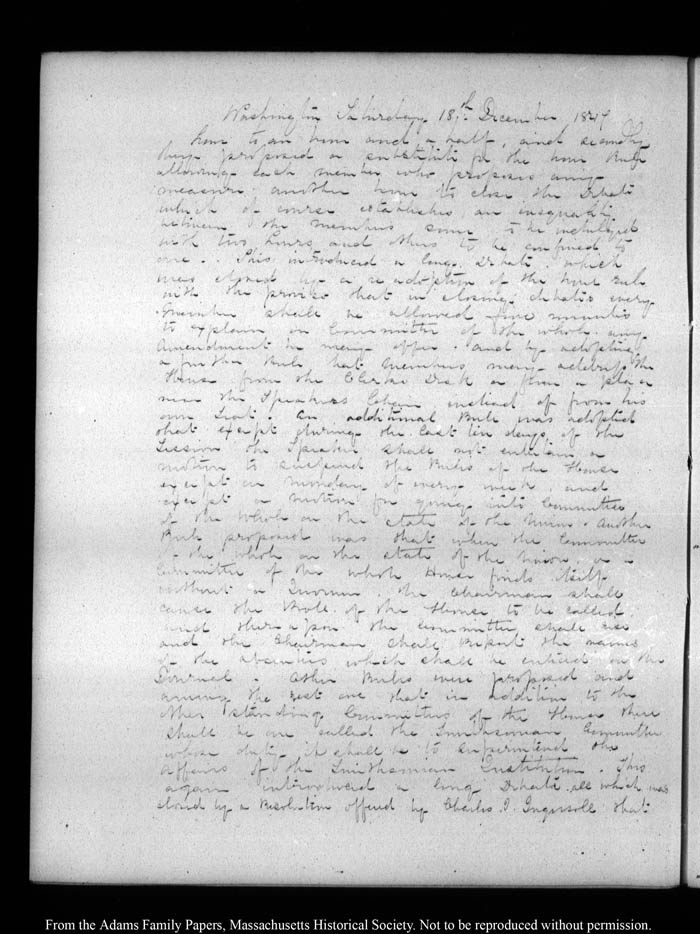 Washington Saturday 18th. December 1847
hour to an hour and a half, and secondly
they proposed a substitute for the hour Rule
allowing each member who proposes any
measure another hour to close the Debate
which of course establishes an inequality
between the members some to be indulged
with two hours and others to be confined to
one. This introduced a long Debate which
was closed by a re adoption of the hour rule
with the proviso that in closing debates every
Member shall be allowed five minutes
to explain in Committee of the whole any
Amendment he may offer. and by adopting
a further Rule that Members may address the
House from the Clerks Desk or from a place
near the Speakers Chair instead of from his
own Seat. An additional Rule was adopted
that except during the last ten days of the
Session the Speaker shall not entertain a
motion to suspend the Rules of the House
except on Monday of every week. and
except a motion for going into Committee
of the Whole on the state of the Union. Another
Rule proposed was that when the Committee
of the whole on the state of the Union, or a
Committee of the whole House finds itself
without a Quorum the Chairman shall
cause the Role of the House to be called
and thereupon the Committee shall rise
and the Chairman shall report the names
of the absentees which shall be entered on the
Journal. Other Rules were proposed and
among the rest one that in addition to the
other standing Committees of the House there
shall be one called the Smithsonian Committee
whose duty it shall be to superintend the
affairs of the Smithsonian Institution. This
again introduced a long Debate all which was
closed by a Resolution offered by Charles J. Ingersoll that
From the Adams Family Papers, Massachusetts Historical Society. Not to be reproduced without permission.